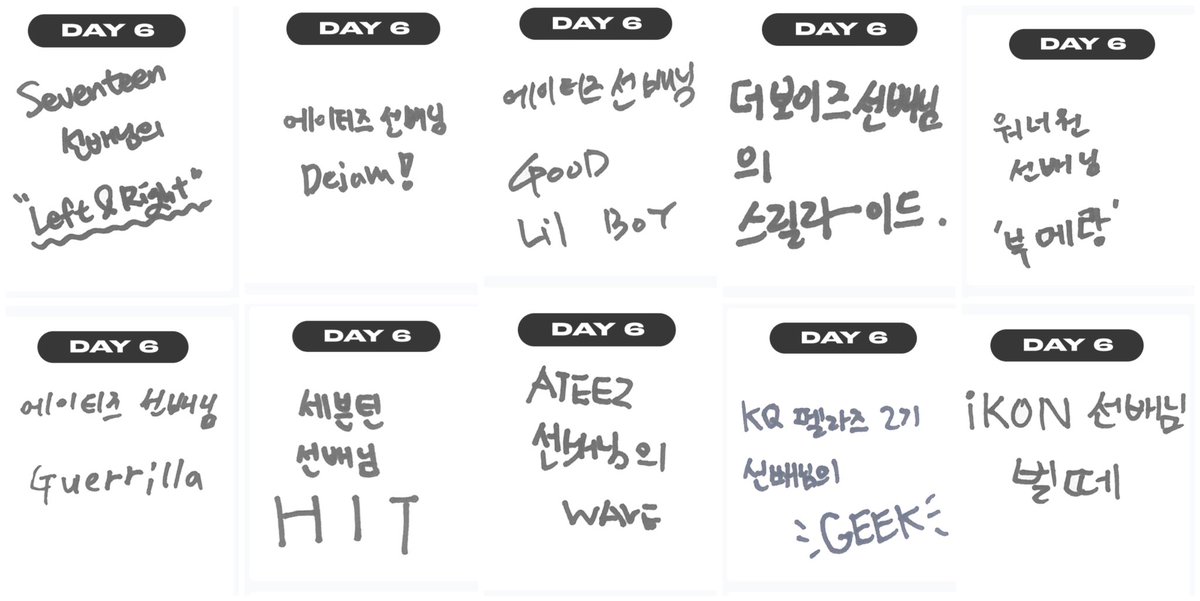 DAY 6
Seventeen
선배님의
"Left & Right"
DAY 6
에이티즈 선배님
Dejavu!
DAY 6
에이티즈 선배님
GOOD
Lil BOY
DAY 6
더보이즈 선배님
의
스릴라이드.
DAY 6
워너원
선배님
'부메랑'
DAY 6
에이티즈 선배님
Guerrilla
DAY 6
세븐틴
선배님
HIT
DAY 6
ATEEZ
선배님의
WAVE
DAY 6
KQ 펠라즈 2기
선배님의
GEEK
DAY 6
iKON 선배님
벌떼